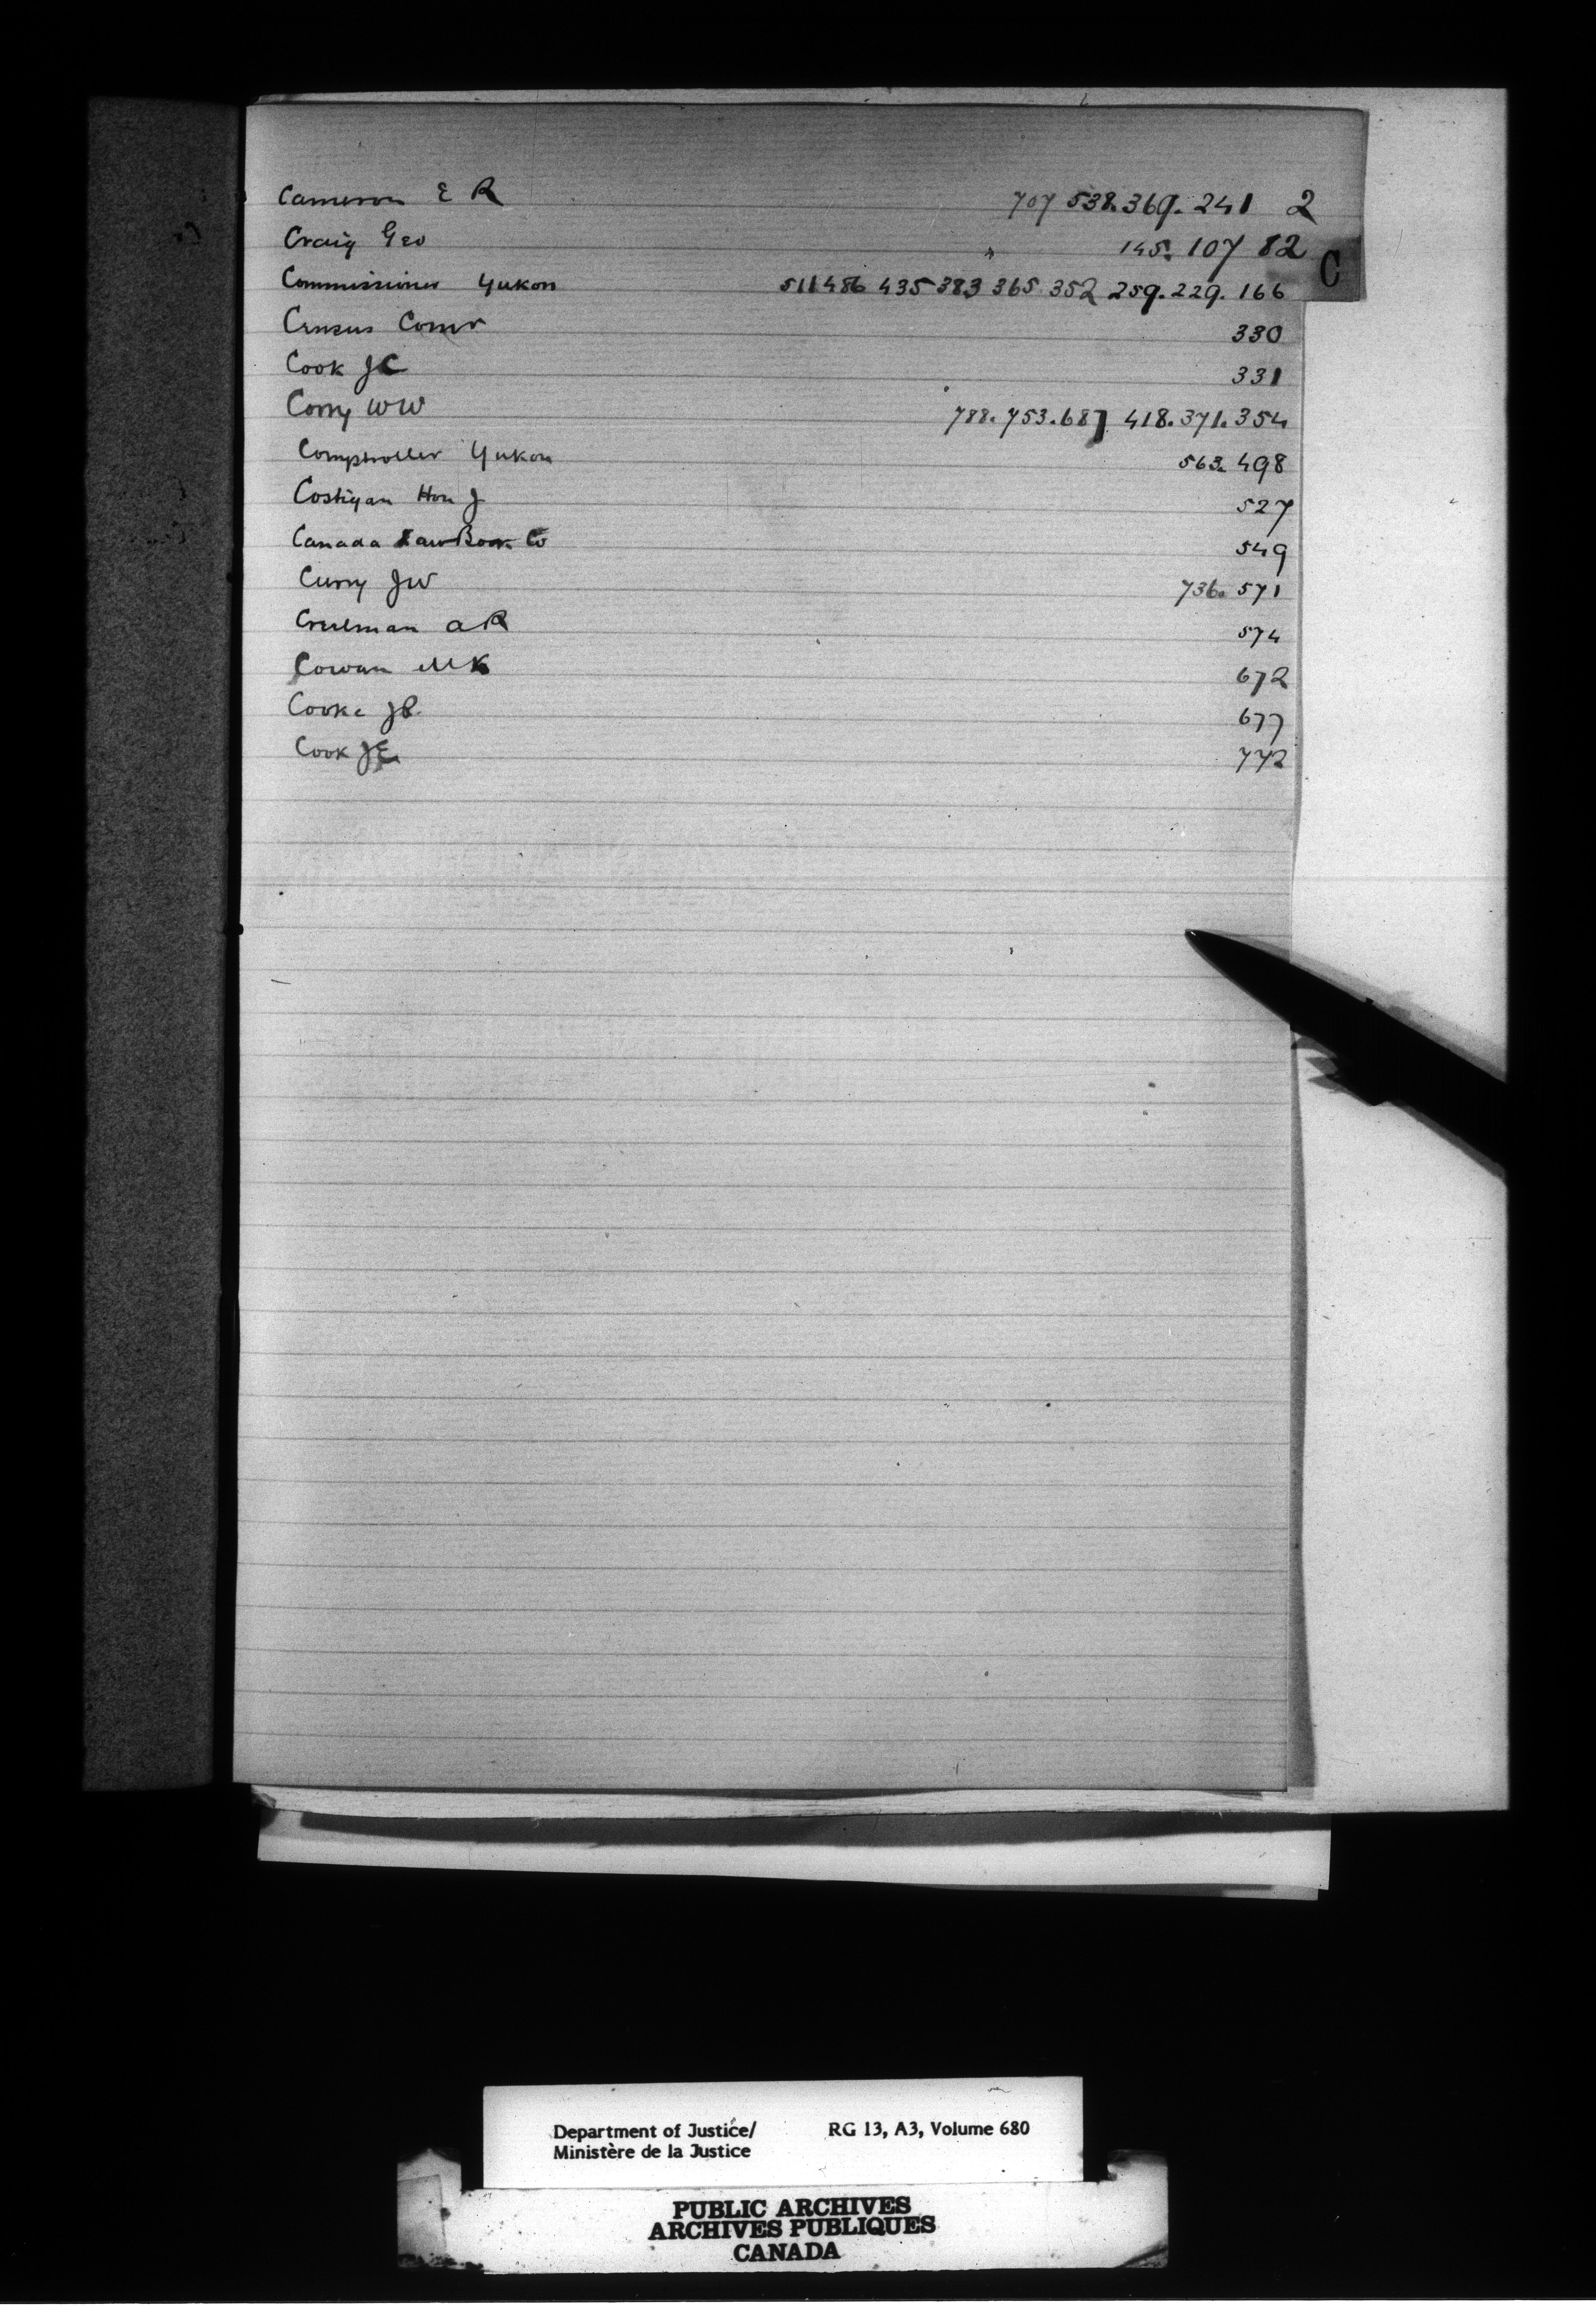 Cameron E R 707 538. 369. 241 2
Craig Geo 145. 107 82
C
Commissioner Yukon 511 486 435 383 365 352 259. 229. 166
Census Comr 330
Cook JC 331
Cory WW 788. 753. 687 418. 371. 354
Comptroller Yukon 563. 498
Costigan Hon J 527
Canada Law Book Co 549
Curry JW 736. 571
Creelman A R 574
Cowan M K 672
Cooke JP 677
Cook JE 772
Department of Justice/ RG 13, A3, Volume 680
Ministère de la Justice
PUBLIC ARCHIVES
ARCHIVES PUBLIQUES
CANADA